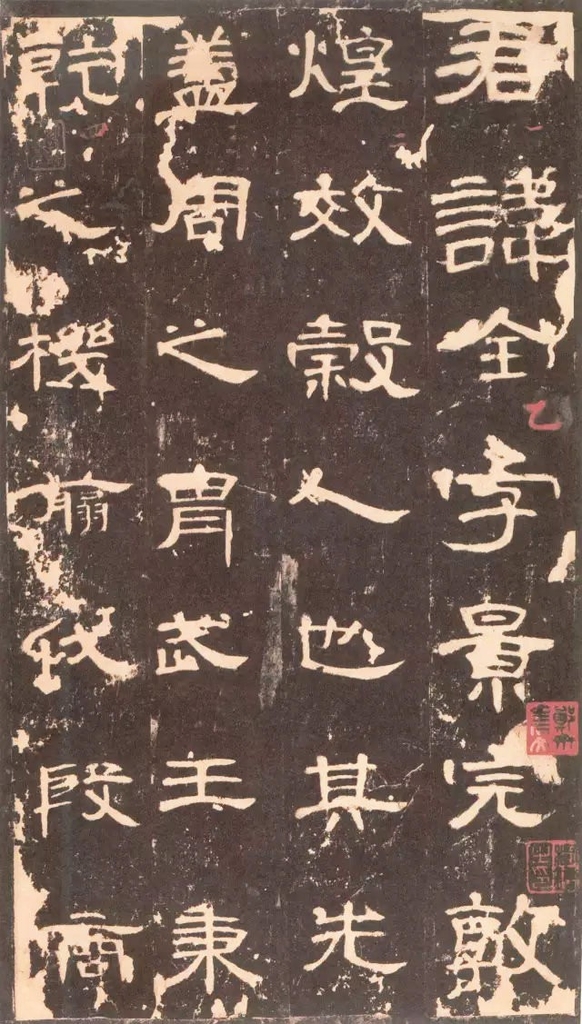 君諱全字景完敦
煌效穀人也其先
蓋周之胄武王秉
乾之機翦伐殷商
乙